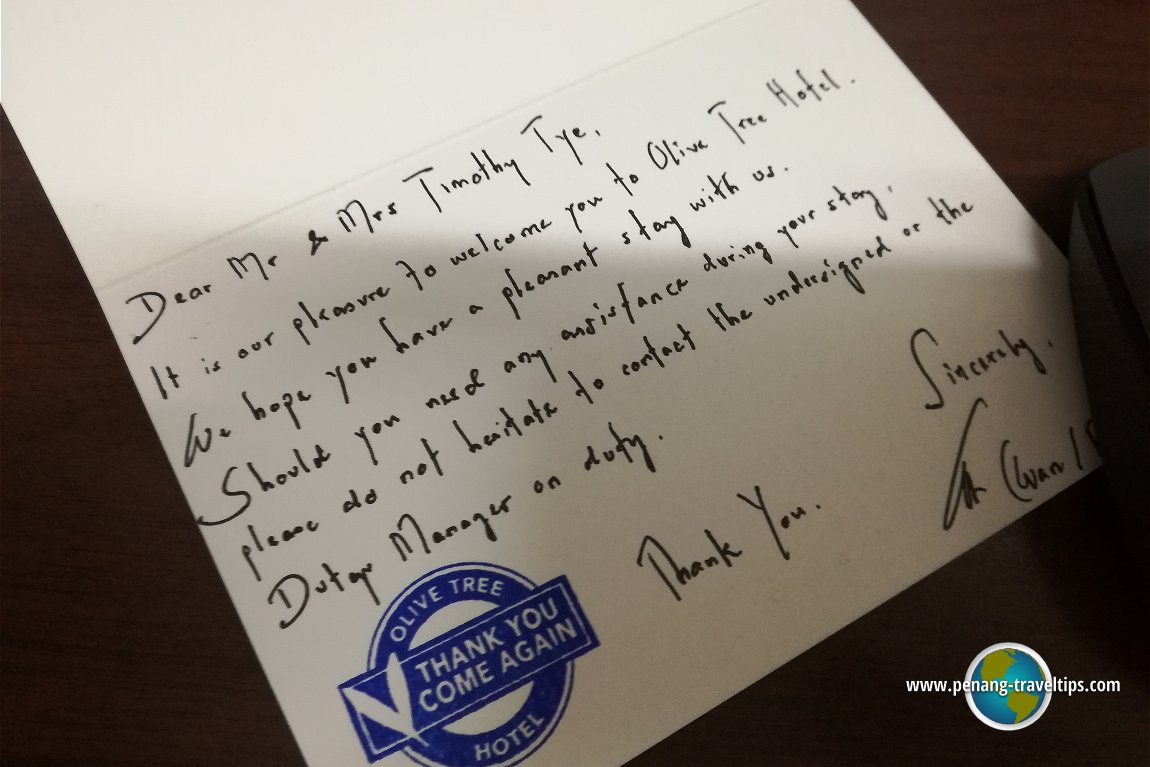 Dear Mr & Mrs Timothy Tye,
It is our pleasure to welcome you to Olive Tree Hotel.
We hope you have a pleasant stay with us.
Should you need any assistance during your stay,
please do not hesitate to contact the undersigned or the
Duty Manager on duty.
Thank You.
Sincerely,
OLIVE TREE
THANK YOU
COME AGAIN
HOTEL
www.penang-traveltips.com